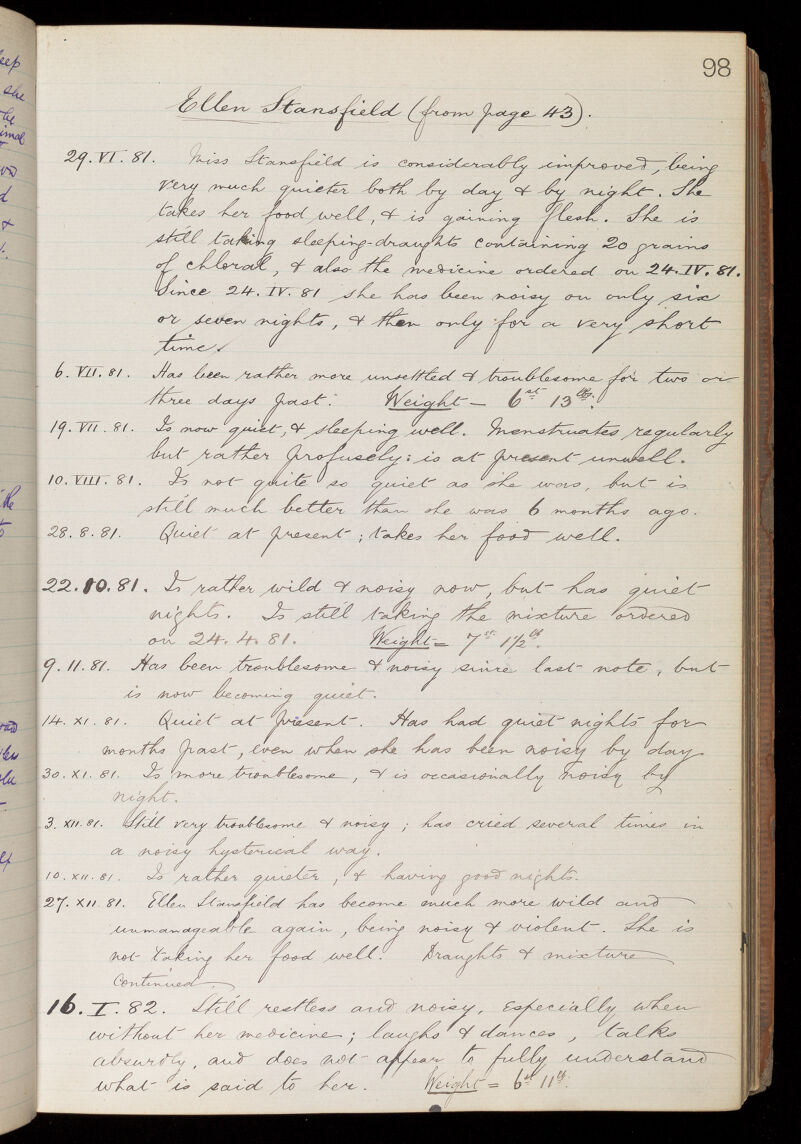 98
Ellen Stansfield (from page 43).
29.VI.81. Miss Stansfield is considerably improved, being
very much quieter both by day & by night. She
takes her food well, & is gaining flesh. She is
still taking sleeping-draughts containing 20 grains
of chloral, & also the medicine ordered on 24.IV.81.
Since 24.IV.81 she has been noisy on only six
or seven nights, & then only for a very short
time.
6.VII.81. Has been rather more unsettled & troublesome for two or
three days past. Weight — 6st 13lbs.
19.VII.81. Is now quiet, & sleeping well. Menstruates regularly
but rather profusely: is at present unwell.
10.VIII.81. Is not quite so quiet as she was, but is
still much better than she was 6 months ago.
28.8.81. Quiet at present; takes her food well.
22.10.81. Is rather wild & noisy now, but has quiet
nights. Is still taking the mixture ordered
on 24.4.81. Weight = 7st 1½lb.
9.11.81. Has been troublesome & noisy since last note, but
is now becoming quiet.
14.XI.81. Quiet at present. Has had quiet nights for
months past, even when she has been noisy by day.
30.XI.81. Is more troublesome, & is occasionally noisy by
night.
3.XII.81. Still very troublesome & noisy; has cried several times in
a noisy hysterical way.
10.XII.81. Is rather quieter, & having good nights.
27.XII.81. Ellen Stansfield has become much more wild and
unmanageable again, being noisy & violent. She is
not taking her food well. Draughts & mixture
continued.
16.I.82. Still restless and noisy, especially when
without her medicine; laughs & dances, talks
absurdly, and does not appear to fully understand
what is said to her. Weight = 6st 11lb.